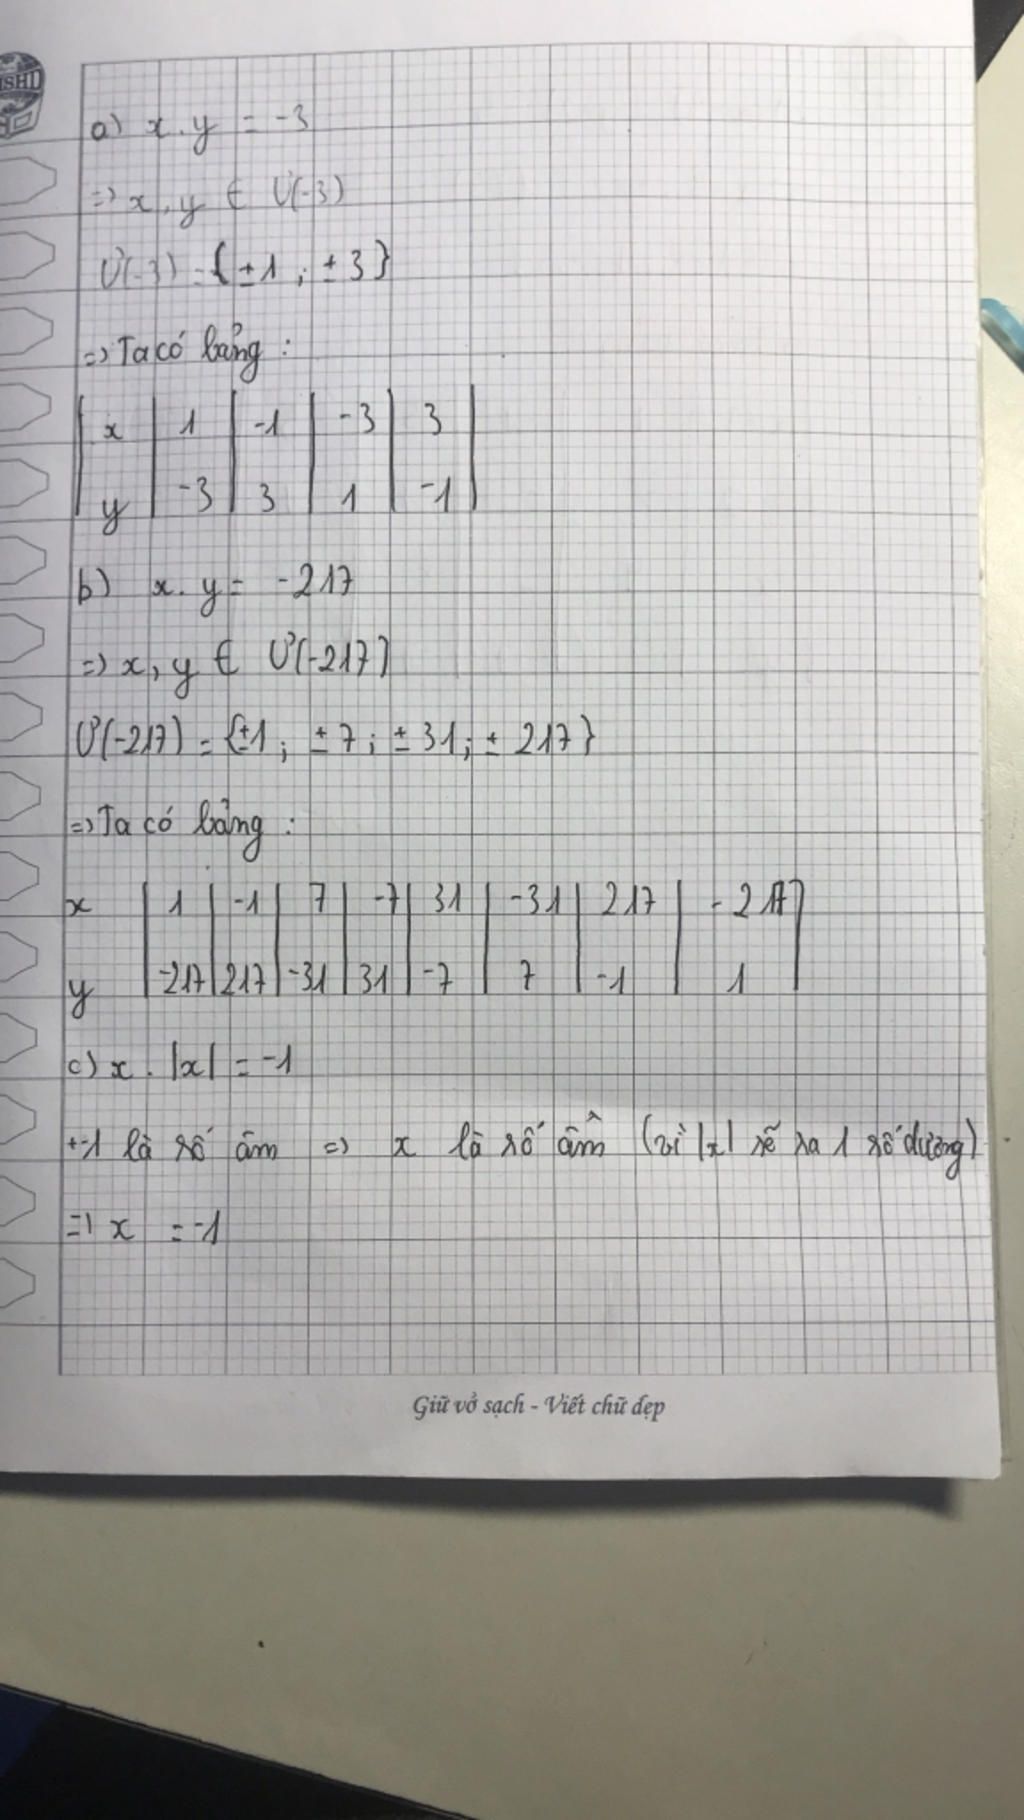 ISHI
a) x.y = -3
=> x,y ∈ Ư(-3)
Ư(-3) = {±1 ; ±3}
=> Ta có bảng :
x | 1 | -1 | -3 | 3 |
y | -3 | 3 | 1 | -1 |
b) x.y = -217
=> x,y ∈ Ư(-217)
Ư(-217) = {±1 ; ±7 ; ±31 ; ±217}
=> Ta có bảng :
x | 1 | -1 | 7 | -7 | 31 | -31 | 217 | -217 |
y | -217 | 217 | -31 | 31 | -7 | 7 | -1 | 1 |
c) x . |x| = -1
+-1 là số âm => x là số âm (vì |x| sẽ ra 1 số dương)
=> x = -1
Giữ vở sạch - Viết chữ đẹp